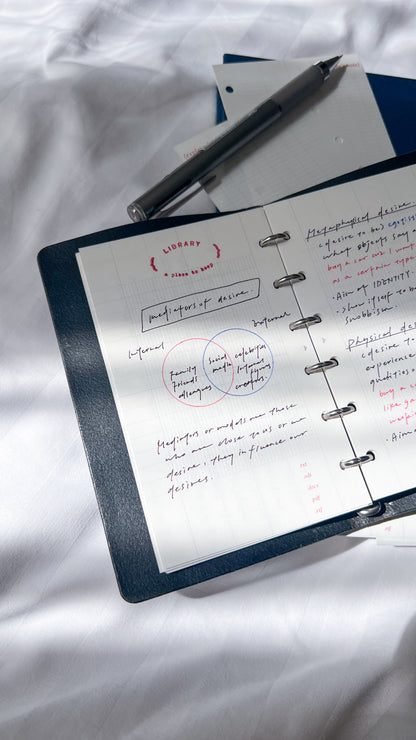 LIBRARY
a place to keep
mediators of desire.
Internal
External
Family
Friends
colleagues
Social
media
celebrities
fictional
figures
creators.
Mediators or models are those
who are close to us or our
desire, they influence our
desires.
Metaphysical desire
(desire to be)
what objects say a
buy a car
as a certain type
· Aim of IDENTITY
· show itself to be
snobbism.
Physical desi
(desire to
experience
qualities o
buy a
like ga
· Aim